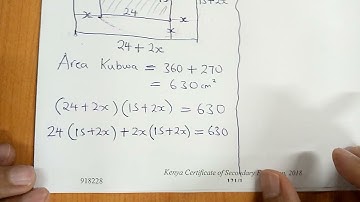 15+2x
x 24 x
x
24+2x
Area Kubwa = 360+270
= 630cm²
(24+2x)(15+2x) = 630
24(15+2x)+2x(15+2x)=630
Kenya Certificate of Secondary 2018
918228